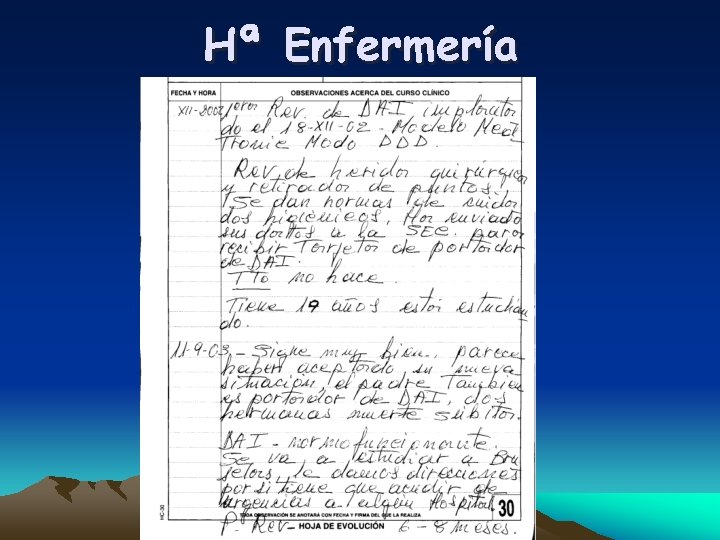 Hª Enfermería
FECHA Y HORA OBSERVACIONES ACERCA DEL CURSO CLÍNICO
XII-2002 1era Rev. de DAI implanta
do el 18-XII-02 - Modelo Med
tronic Modo DDD.
Rev. de herida quirúrgica
y retirada de puntos.
Se dan normas de cuida
dos higiénicos, Hoz enviado
sus datos a la SEC. para
recibir Tarjeta de portador
de DAI.
TTO no hace.
Tiene 19 años está estudian
do.
11-9-03 - Sigue muy bien, parece
haber aceptado su nueva
situación, el padre también
es portador de DAI, dos
hermanas muerte súbita.
DAI - normofuncionante.
Se va a estudiar a Bru
selas, le damos direcciones
por si tiene que acudir de
urgencias a algún Hospital.
TODA OBSERVACIÓN SE ANOTARÁ CON FECHA Y FIRMA DEL QUE LA REALIZA
30
HC-30
P. Rev 6 - 8 meses.
HOJA DE EVOLUCIÓN